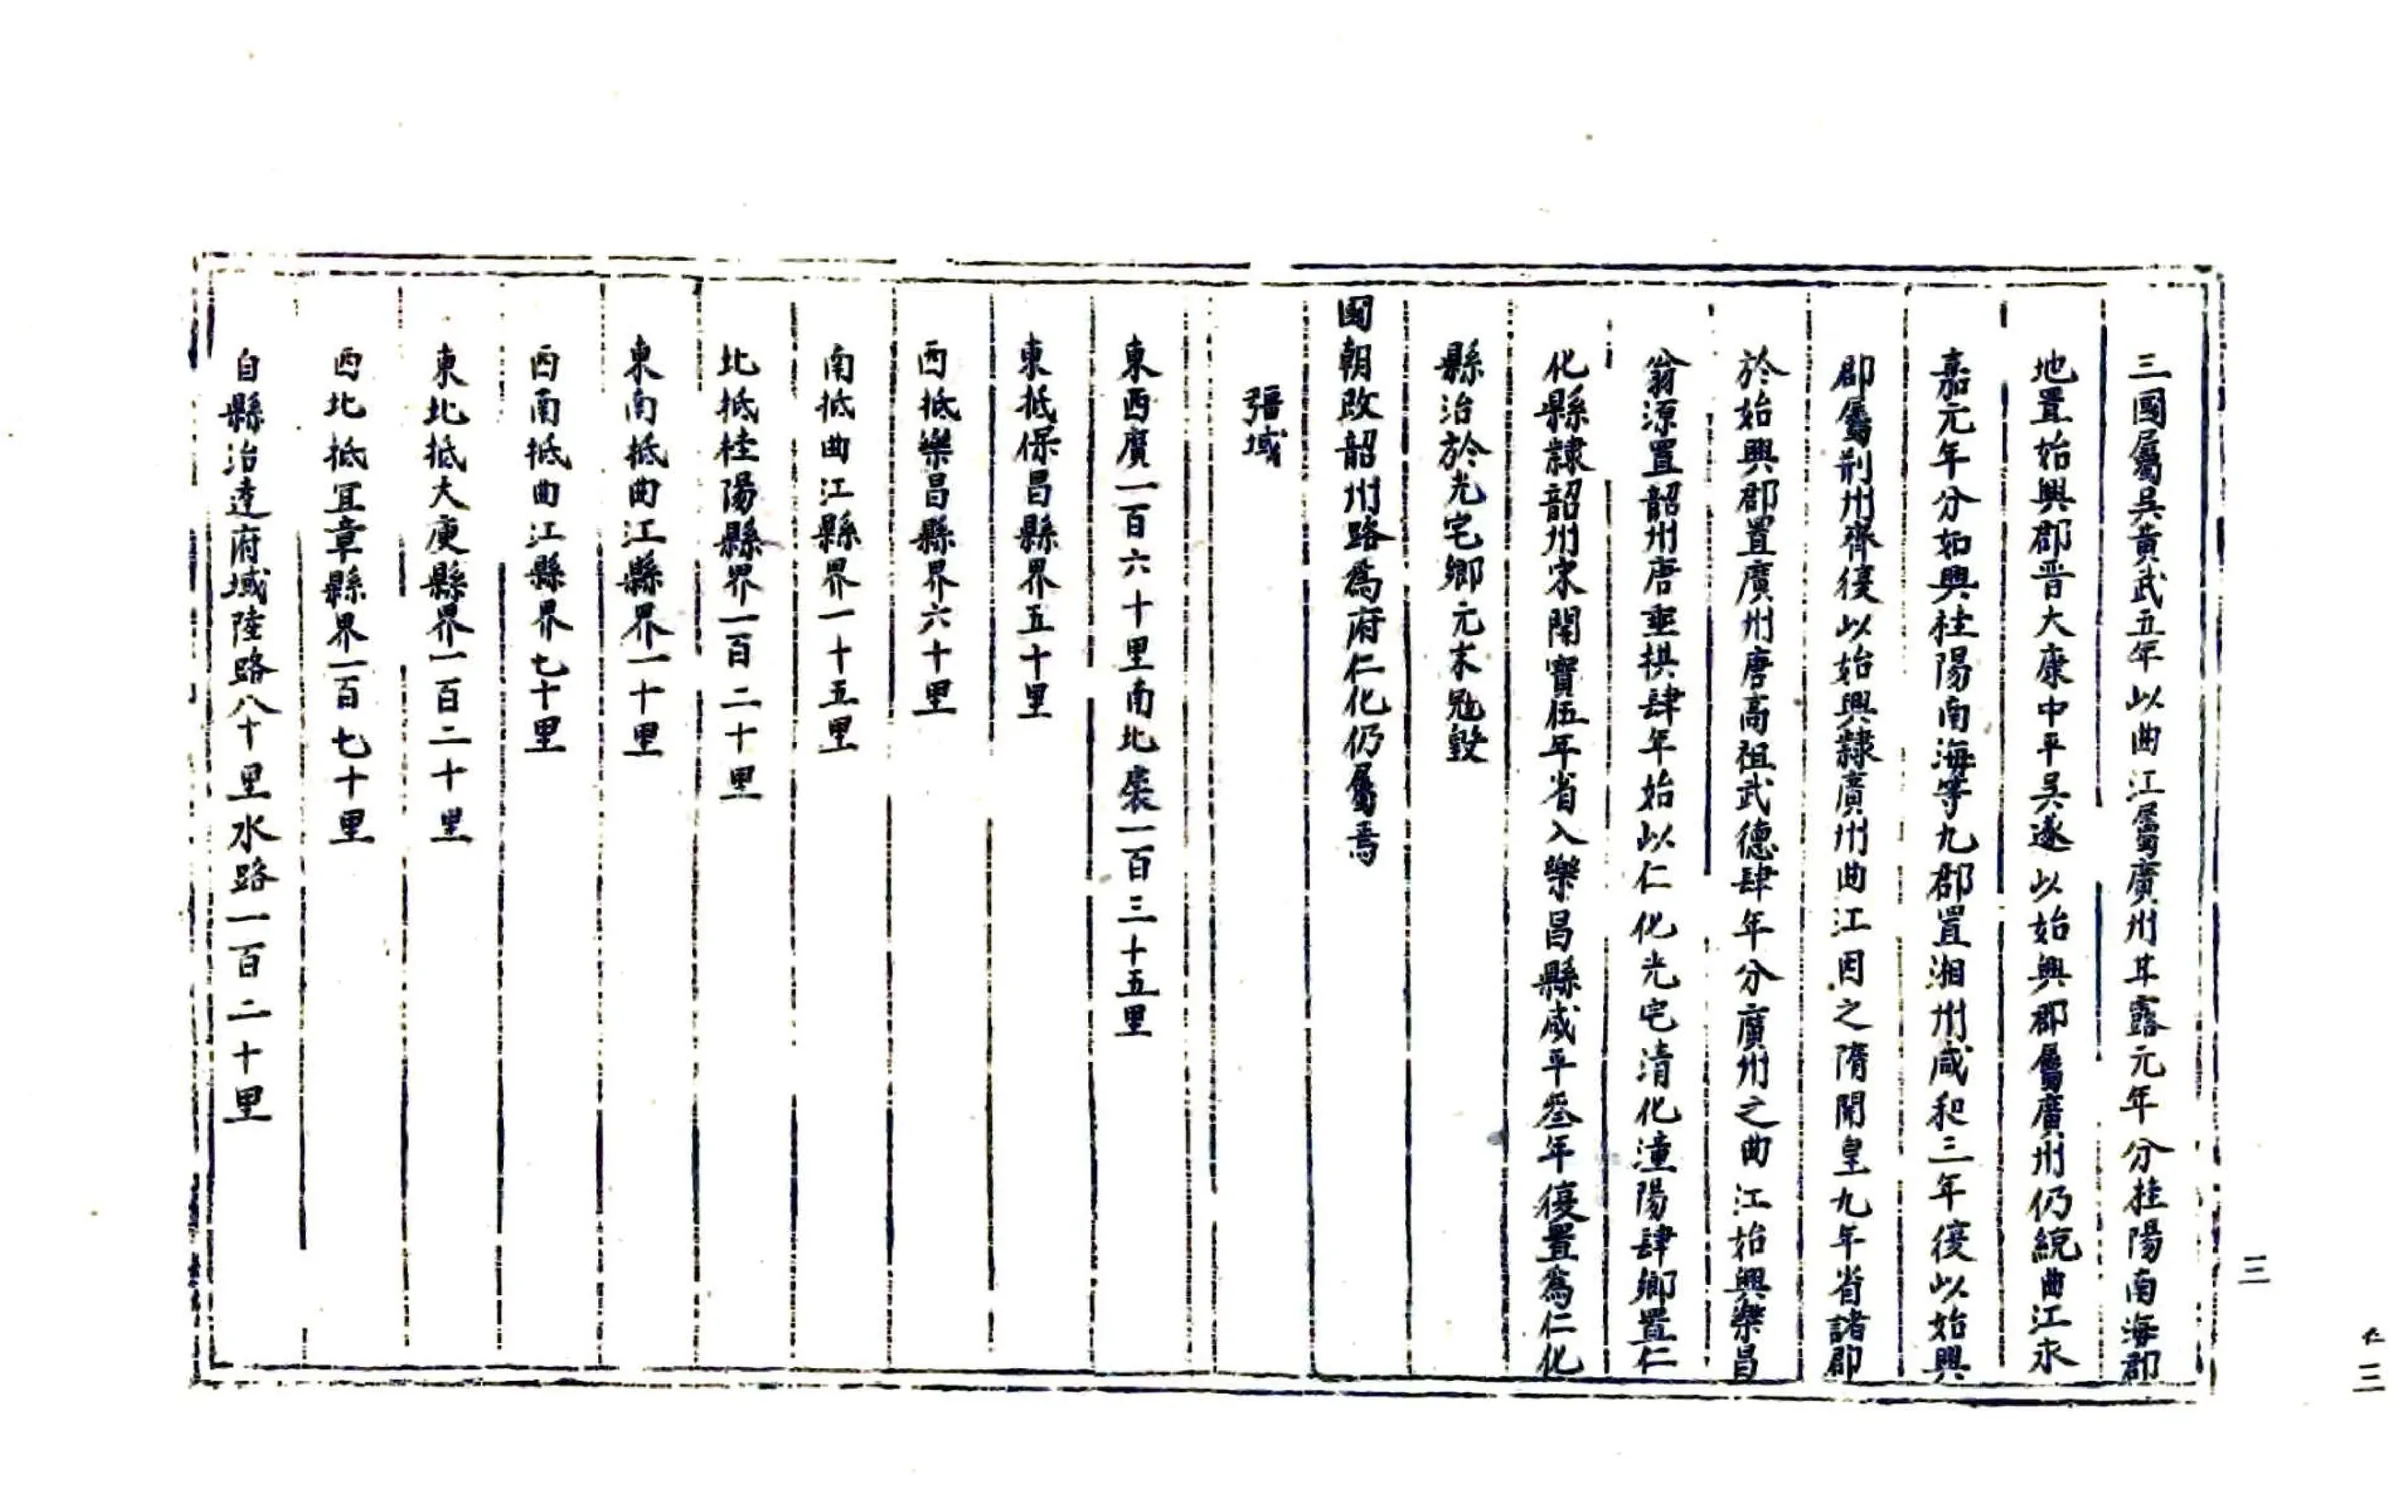 三國屬吳黃武五年以曲江屬廣州甘露元年分桂陽南海郡
地置始興郡晉大康中平吳遂以始興郡屬廣州仍統曲江永
嘉元年分如興桂陽南海等九郡置湘州咸和三年復以始興
郡屬荆州齊復以始興隸廣州曲江因之隋開皇九年省諸郡
於始興郡置廣州唐高祖武德肆年分廣州之曲江始興樂昌
翁源置韶州唐垂拱肆年始以仁化光宅清化潼陽肆鄉置仁
化縣隸韶州宋開寶伍年省入樂昌縣咸平叁年復置為仁化
縣治於光宅鄉元末冦毀
國朝改韶州路爲府仁化仍屬焉
疆域
東西廣一百六十里南北袤一百三十五里
東抵保昌縣界五十里
西抵樂昌縣界六十里
南抵曲江縣界一十五里
北抵桂陽縣界一百二十里
東南抵曲江縣界一十里
西南抵曲江縣界七十里
東北抵大庾縣界一百二十里
西北抵宜章縣界一百七十里
自縣治逹府城陸路八十里水路一百二十里
三
三